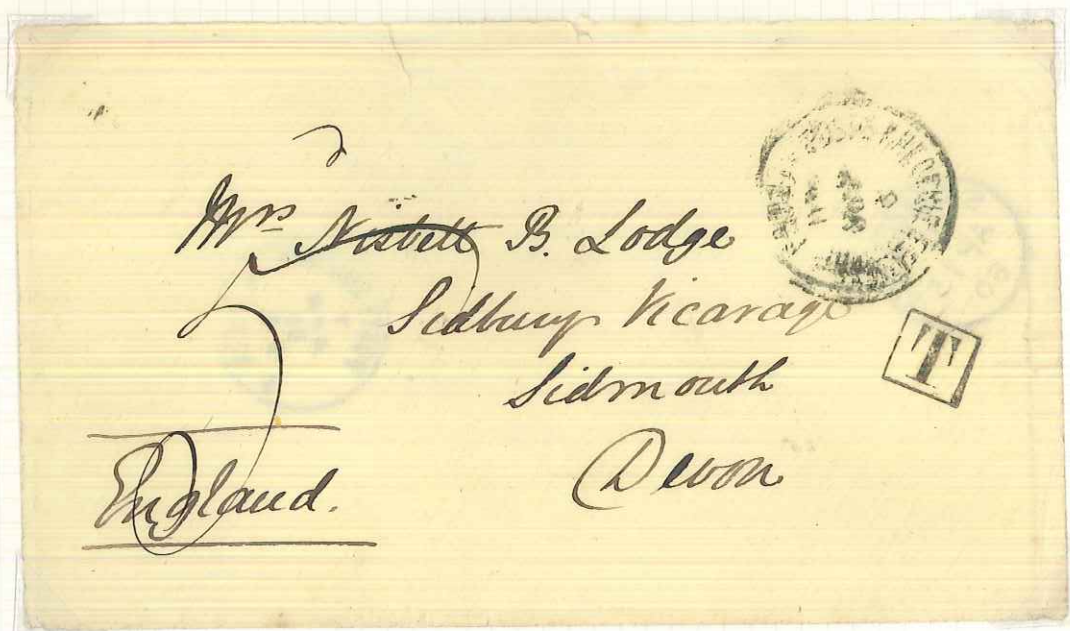 Mrs Nisbett B. Lodge
Sidbury Vicarage
Sidmouth
Devon
England.
T